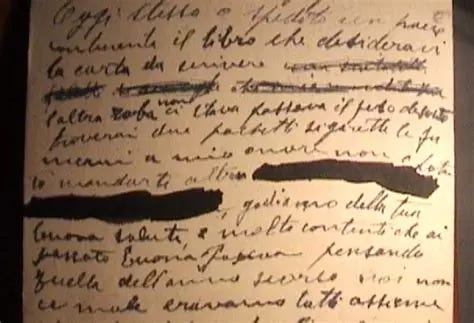 Oggi stesso o spedito un pacco
contenente il libro che desideravi
la carta da scrivere
l'altra roba non ci stava passava il peso dovuto
troverai due pacchetti sigarette le fu
merai a mio onore non o potu
to mandarti altro
, godiamo della tua
buona salute, e molto contenti che ai
passato buona Pasqua pensando
quella dell'anno scorso noi non
ce male eravamo tutti assieme